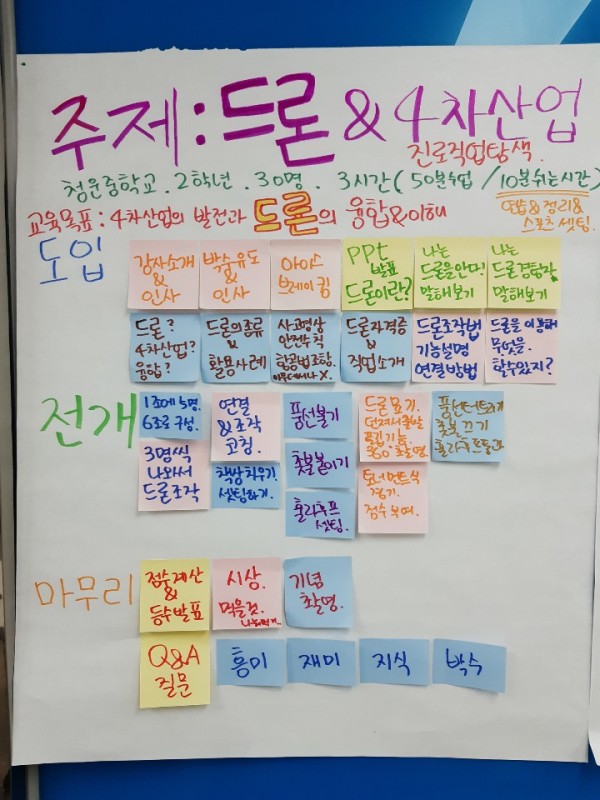 주제:드론 & 4차산업
진로직업탐색.
청운중학교. 2학년. 30명. 3시간(50분수업/10분쉬는시간)
교육목표: 4차산업의 발전과 드론의 융합&이해
연습&정리&
스포츠 셋팅.
도입
강사소개
&
인사
박수유도
&
인사
아이스
브레이킹
PPt
발표
드론이란?
나는
드론을안다!
말해보기
나는
드론경험담
말해보기
드론?
4차산업?
융합?
드론의종류
&
활용사례
사고영상
안전수칙
항공법조항.
드론자격증
&
직업소개
드론조작법
기능설명
연결방법
드론을 이용해
무엇을
할수있지?
전개
1조에 5명.
6조로 구성.
연결
&조작
코칭.
풍선불기
드론묘기.
던져서출발
플립기능.
360°촬영.
풍선터트리기
촛불끄기
훌라후프통과
3명씩
나와서
드론조작
책상치우기.
셋팅하기.
촛불붙이기
토너먼트식
경기.
점수부여.
훌라후프
셋팅.
마무리
점수계산
&
등수발표
시상.
먹을것.
나눠먹기.
기념
촬영.
Q&A
질문
흥미
재미
지식
박수